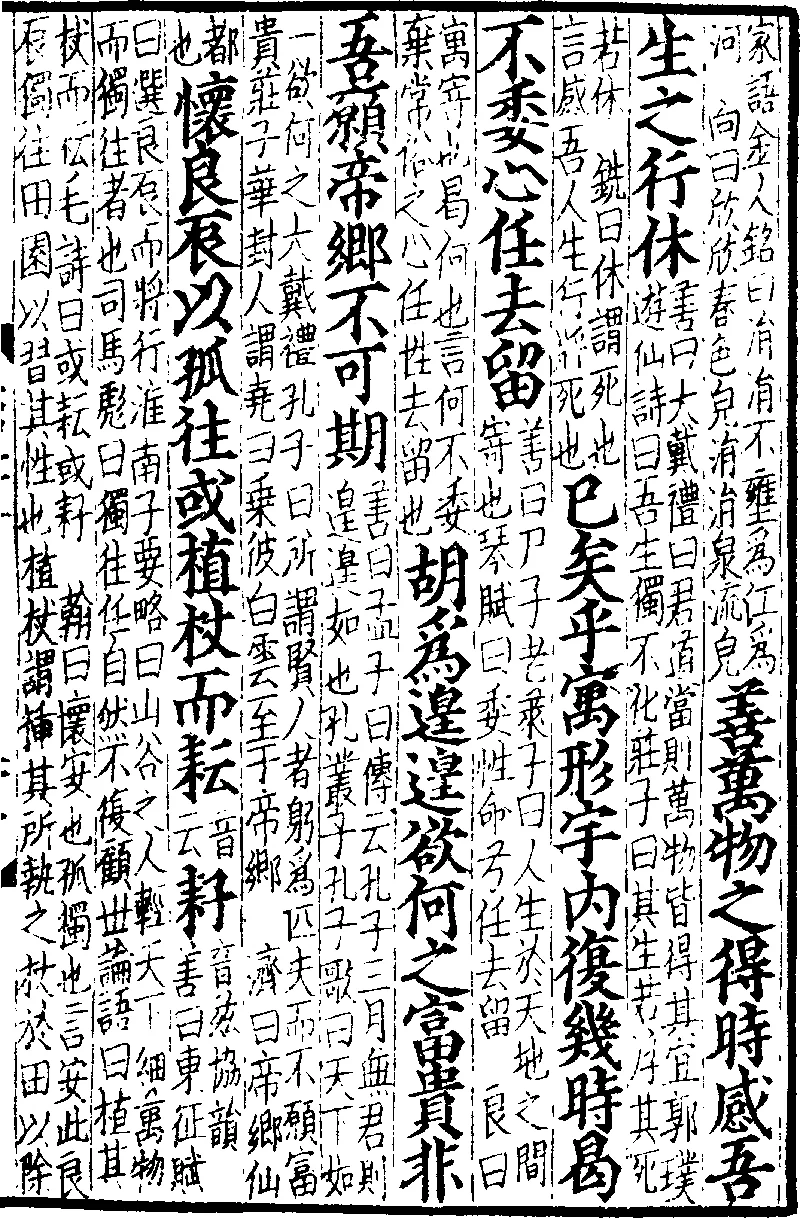 家語金人銘曰涓涓不壅爲江爲
河 向曰欣欣春色皃涓涓泉流皃
善萬物之得時感吾
生之行休
善曰大戴禮曰君道當則萬物皆得其宜郭璞
遊仙詩曰吾生獨不化莊子曰其生若浮其死
若休 銑曰休謂死也
言感吾人生行將死也
已矣乎寓形宇内復幾時曷
不委心任去留
善曰尸子老萊子曰人生於天地之間
寄也琴賦曰委性命兮任去留 良曰
寓寄也曷何也言何不委
棄常俗之心任性去留也
胡爲遑遑欲何之富貴非
吾願帝鄉不可期
善曰孟子曰傳云孔子三月無君則
遑遑如也孔叢子孔子歌曰天下如
一欲何之大戴禮孔子曰所謂賢人者躬爲匹夫而不願富
貴莊子華封人謂堯曰乘彼白雲至于帝鄉 濟曰帝鄉仙
都
也
懷良辰以孤往或植杖而耘
音
云
耔
音兹協韻
善曰東征賦
曰選良辰而將行淮南子要略曰山谷之人輕天下細萬物
而獨往者也司馬彪曰獨往任自然不復顧世論語曰植其
杖而耘毛詩曰或耘或耔 翰曰懷安也孤獨也言安此良
辰獨往田園以習其性也植杖謂插其所執之杖於田以除